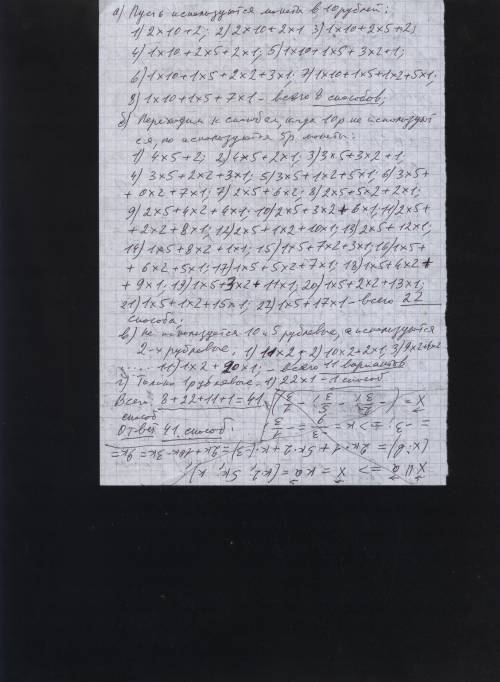 а) Пусть используются монеты в 10 рублей:
1) 2×10+2; 2) 2×10+2×1 3) 1×10+2×5+2;
4) 1×10+2×5+2×1; 5) 1×10+1×5+3×2+1;
6) 1×10+1×5+2×2+3×1; 7) 1×10+1×5+1×2+5×1;
8) 1×10+1×5+7×1 - всего 8 способов;
б) Переходим к способам, когда 10р не использует
ся, но используются 5р монеты:
1) 4×5+2; 2) 4×5+2×1; 3) 3×5+3×2+1
4) 3×5+2×2+3×1; 5) 3×5+1×2+5×1; 6) 3×5+
+0×2+7×1; 7) 2×5+6×2; 8) 2×5+5×2+2×1;
9) 2×5+4×2+4×1; 10) 2×5+3×2+6×1; 11) 2×5+
+2×2+8×1; 12) 2×5+1×2+10×1; 13) 2×5+12×1;
14) 1×5+8×2+1×1; 15) 1×5+7×2+3×1; 16) 1×5+
+6×2+5×1; 17) 1×5+5×2+7×1; 18) 1×5+4×2+
+9×1; 19) 1×5+3×2+11×1; 20) 1×5+2×2+13×1;
21) 1×5+1×2+15×1; 22) 1×5+17×1 - всего 22
способа.
в) Не используются 10 и 5 рублевые, а используются
2-х рублевые. 1) 11×2; 2) 10×2+2×1; 3) 9×2+4×1
..... 11) 1×2+20×1; - всего 11 вариантов
г) Только 1рублевые. 1) 22×1 - 1 способ
Всего 8+22+11+1=41
способ
Ответ 41 способ.